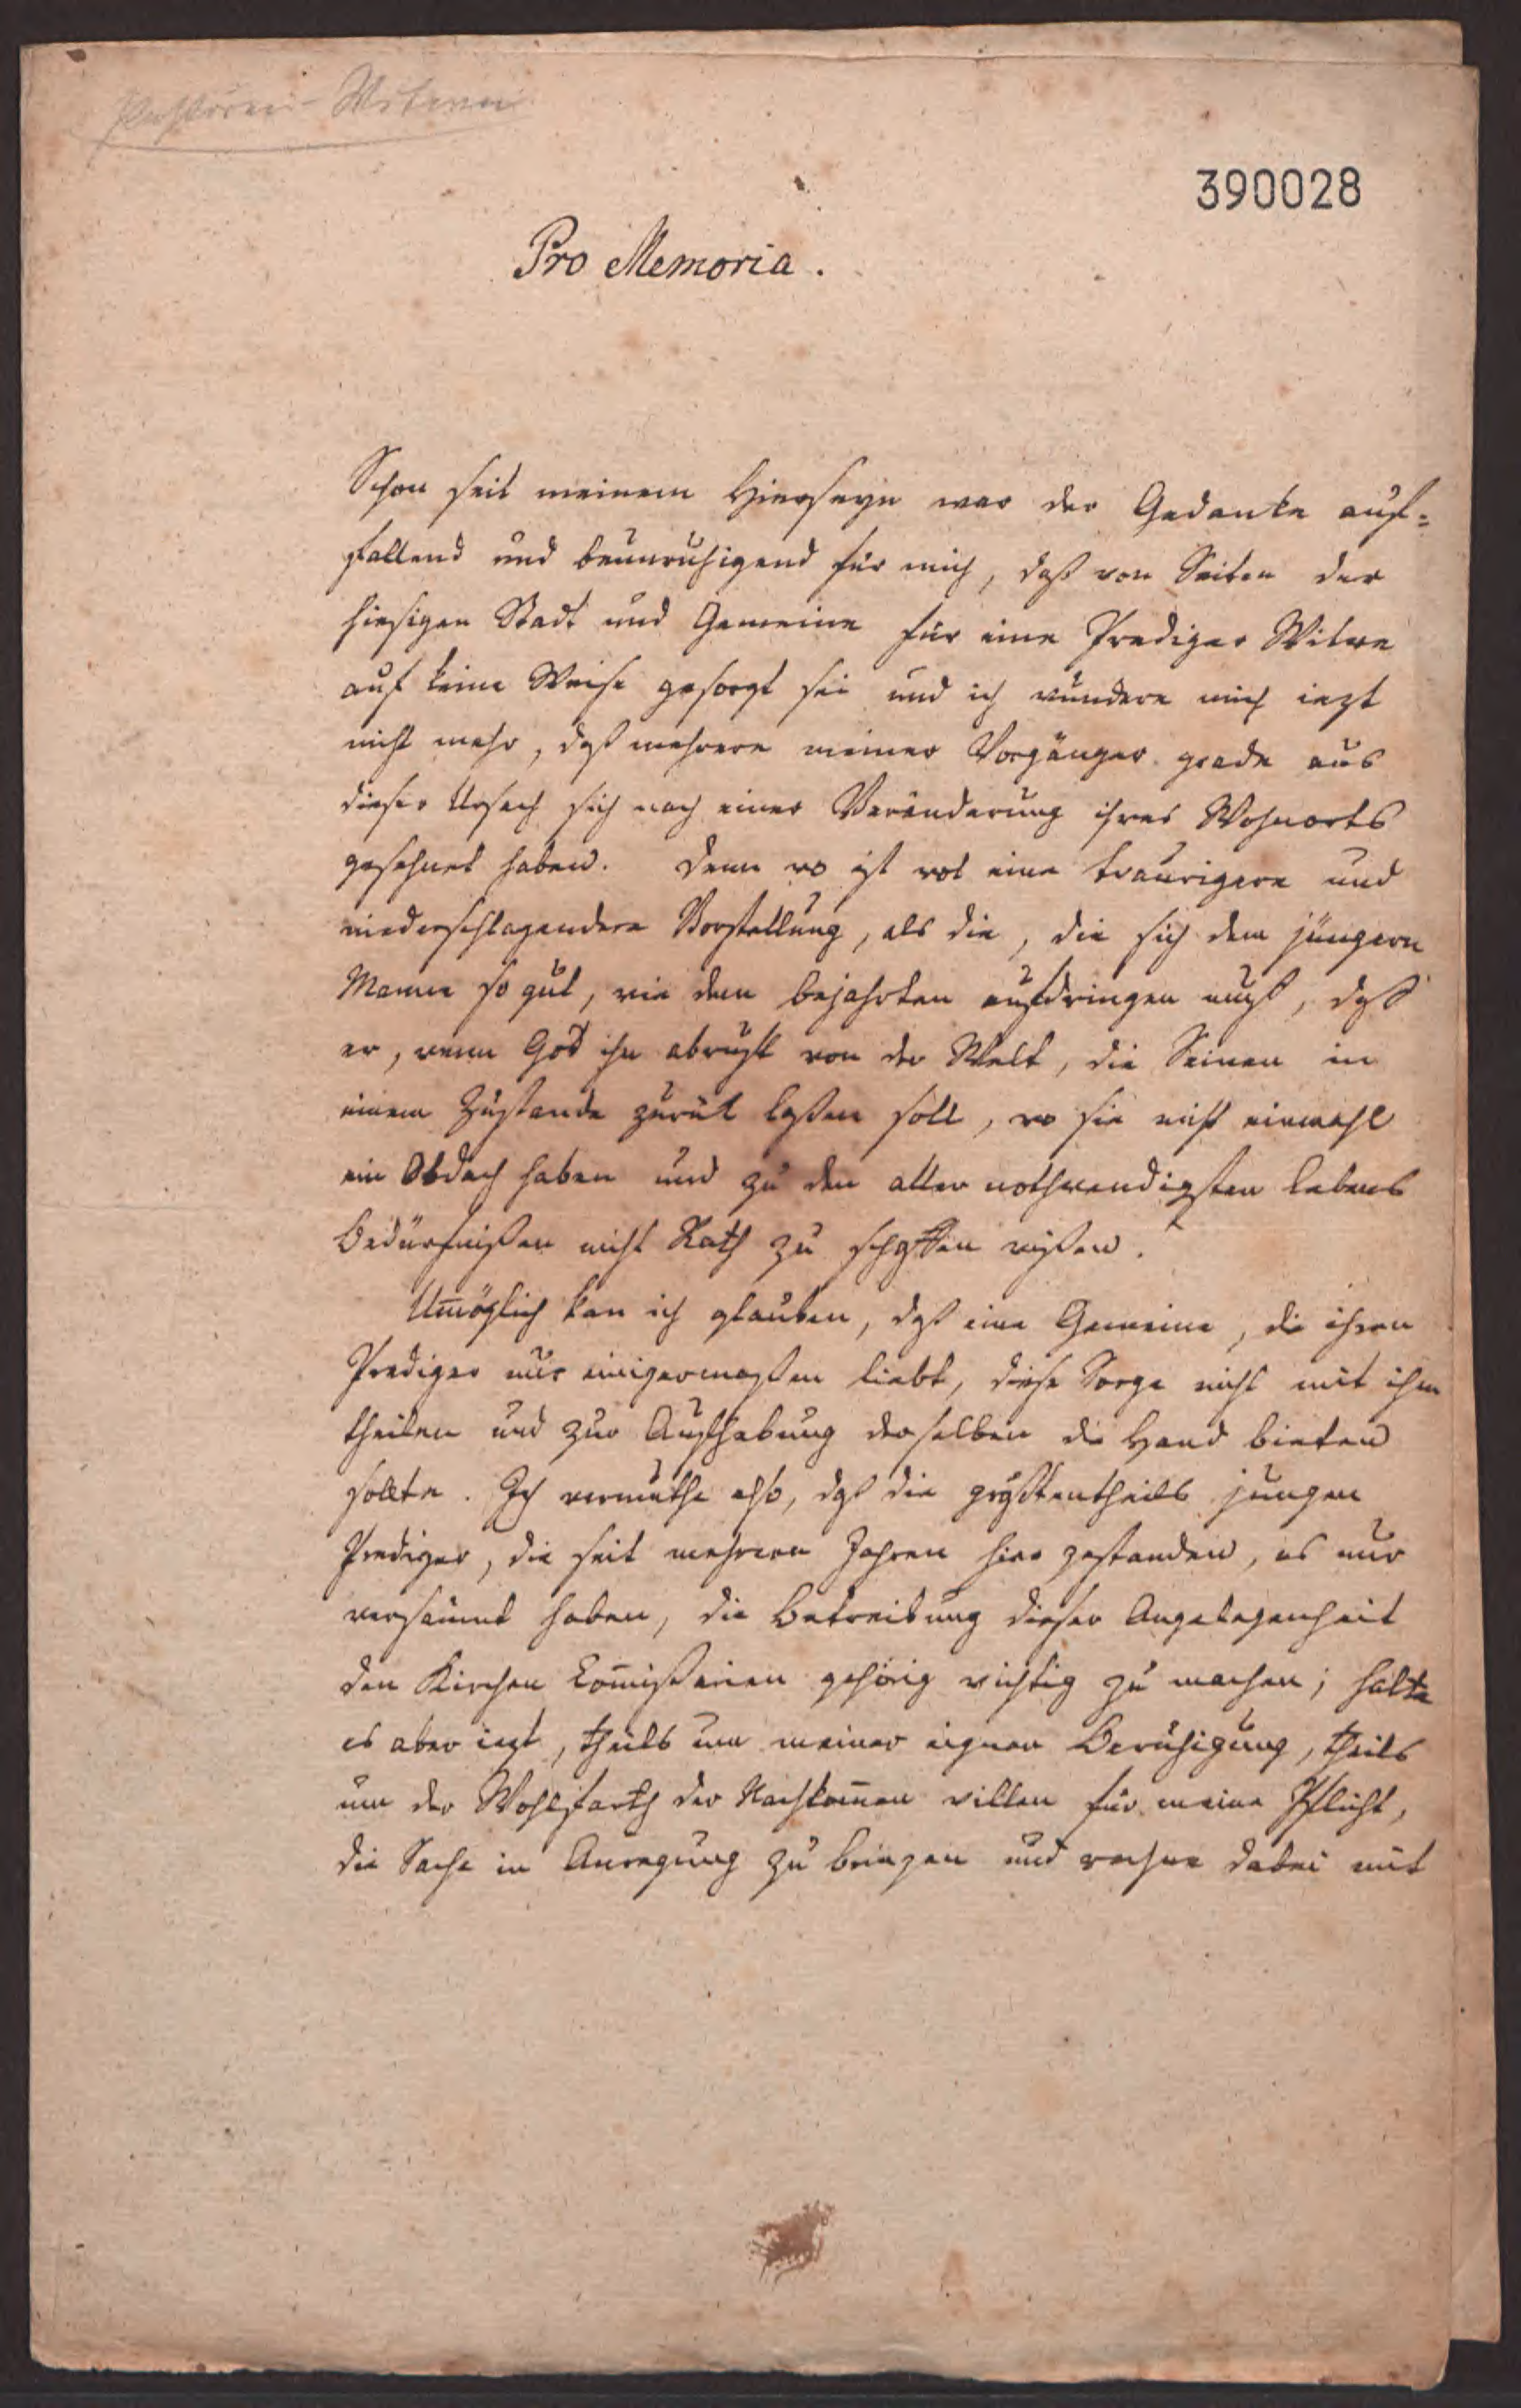 Pastoren-Witwen
390028
Pro Memoria.
Schon seit meinem Hierseyn war der Gedanke auf=
fallend und beunruhigend für mich, daß von Seiten der
hiesigen Stadt und Gemeine für eine Prediger Witwe
auf keine Weise gesorgt sei und ich wundere mich iezt
nicht mehr, daß mehrere meiner Vorgänger grade aus
dieser Ursach sich nach einer Veränderung ihres Wohnorts
gesehnet haben. Denn wo ist wol eine traurigere und
niederschlagendere Vorstellung, als die, die sich dem jüngern
Manne so gut, wie dem bejahrten aufdringen muß, daß
er, wenn Gott ihn abruft von der Welt, die Seinen in
einem Zustande zurük laßen soll, wo sie nicht einmahl
ein Obdach haben und zu den aller nothwendigsten Lebens
Bedürfnißen nicht Rath zu schaffen wißen.
Unmöglich kan ich glauben, daß eine Gemeine, die ihren
Prediger nur einigermaßen liebt, diese Sorge nicht mit ihm
theilen und zur Aufhebung derselben die Hand bieten
sollte. Ich vermuthe also, daß die größtentheils jungen
Prediger, die seit mehrern Jahren hier gestanden, es nur
versäumt haben, die Betreibung dieser Angelegenheit
den Kirchen Com̄ißarien gehörig wichtig zu machen; halte
es aber iezt, theils um meiner eignen Beruhigung, theils
um der Wohlfarth der Nachkom̄en willen für meine Pflicht,
die Sache in Anregung zu bringen und rechne dabei mit